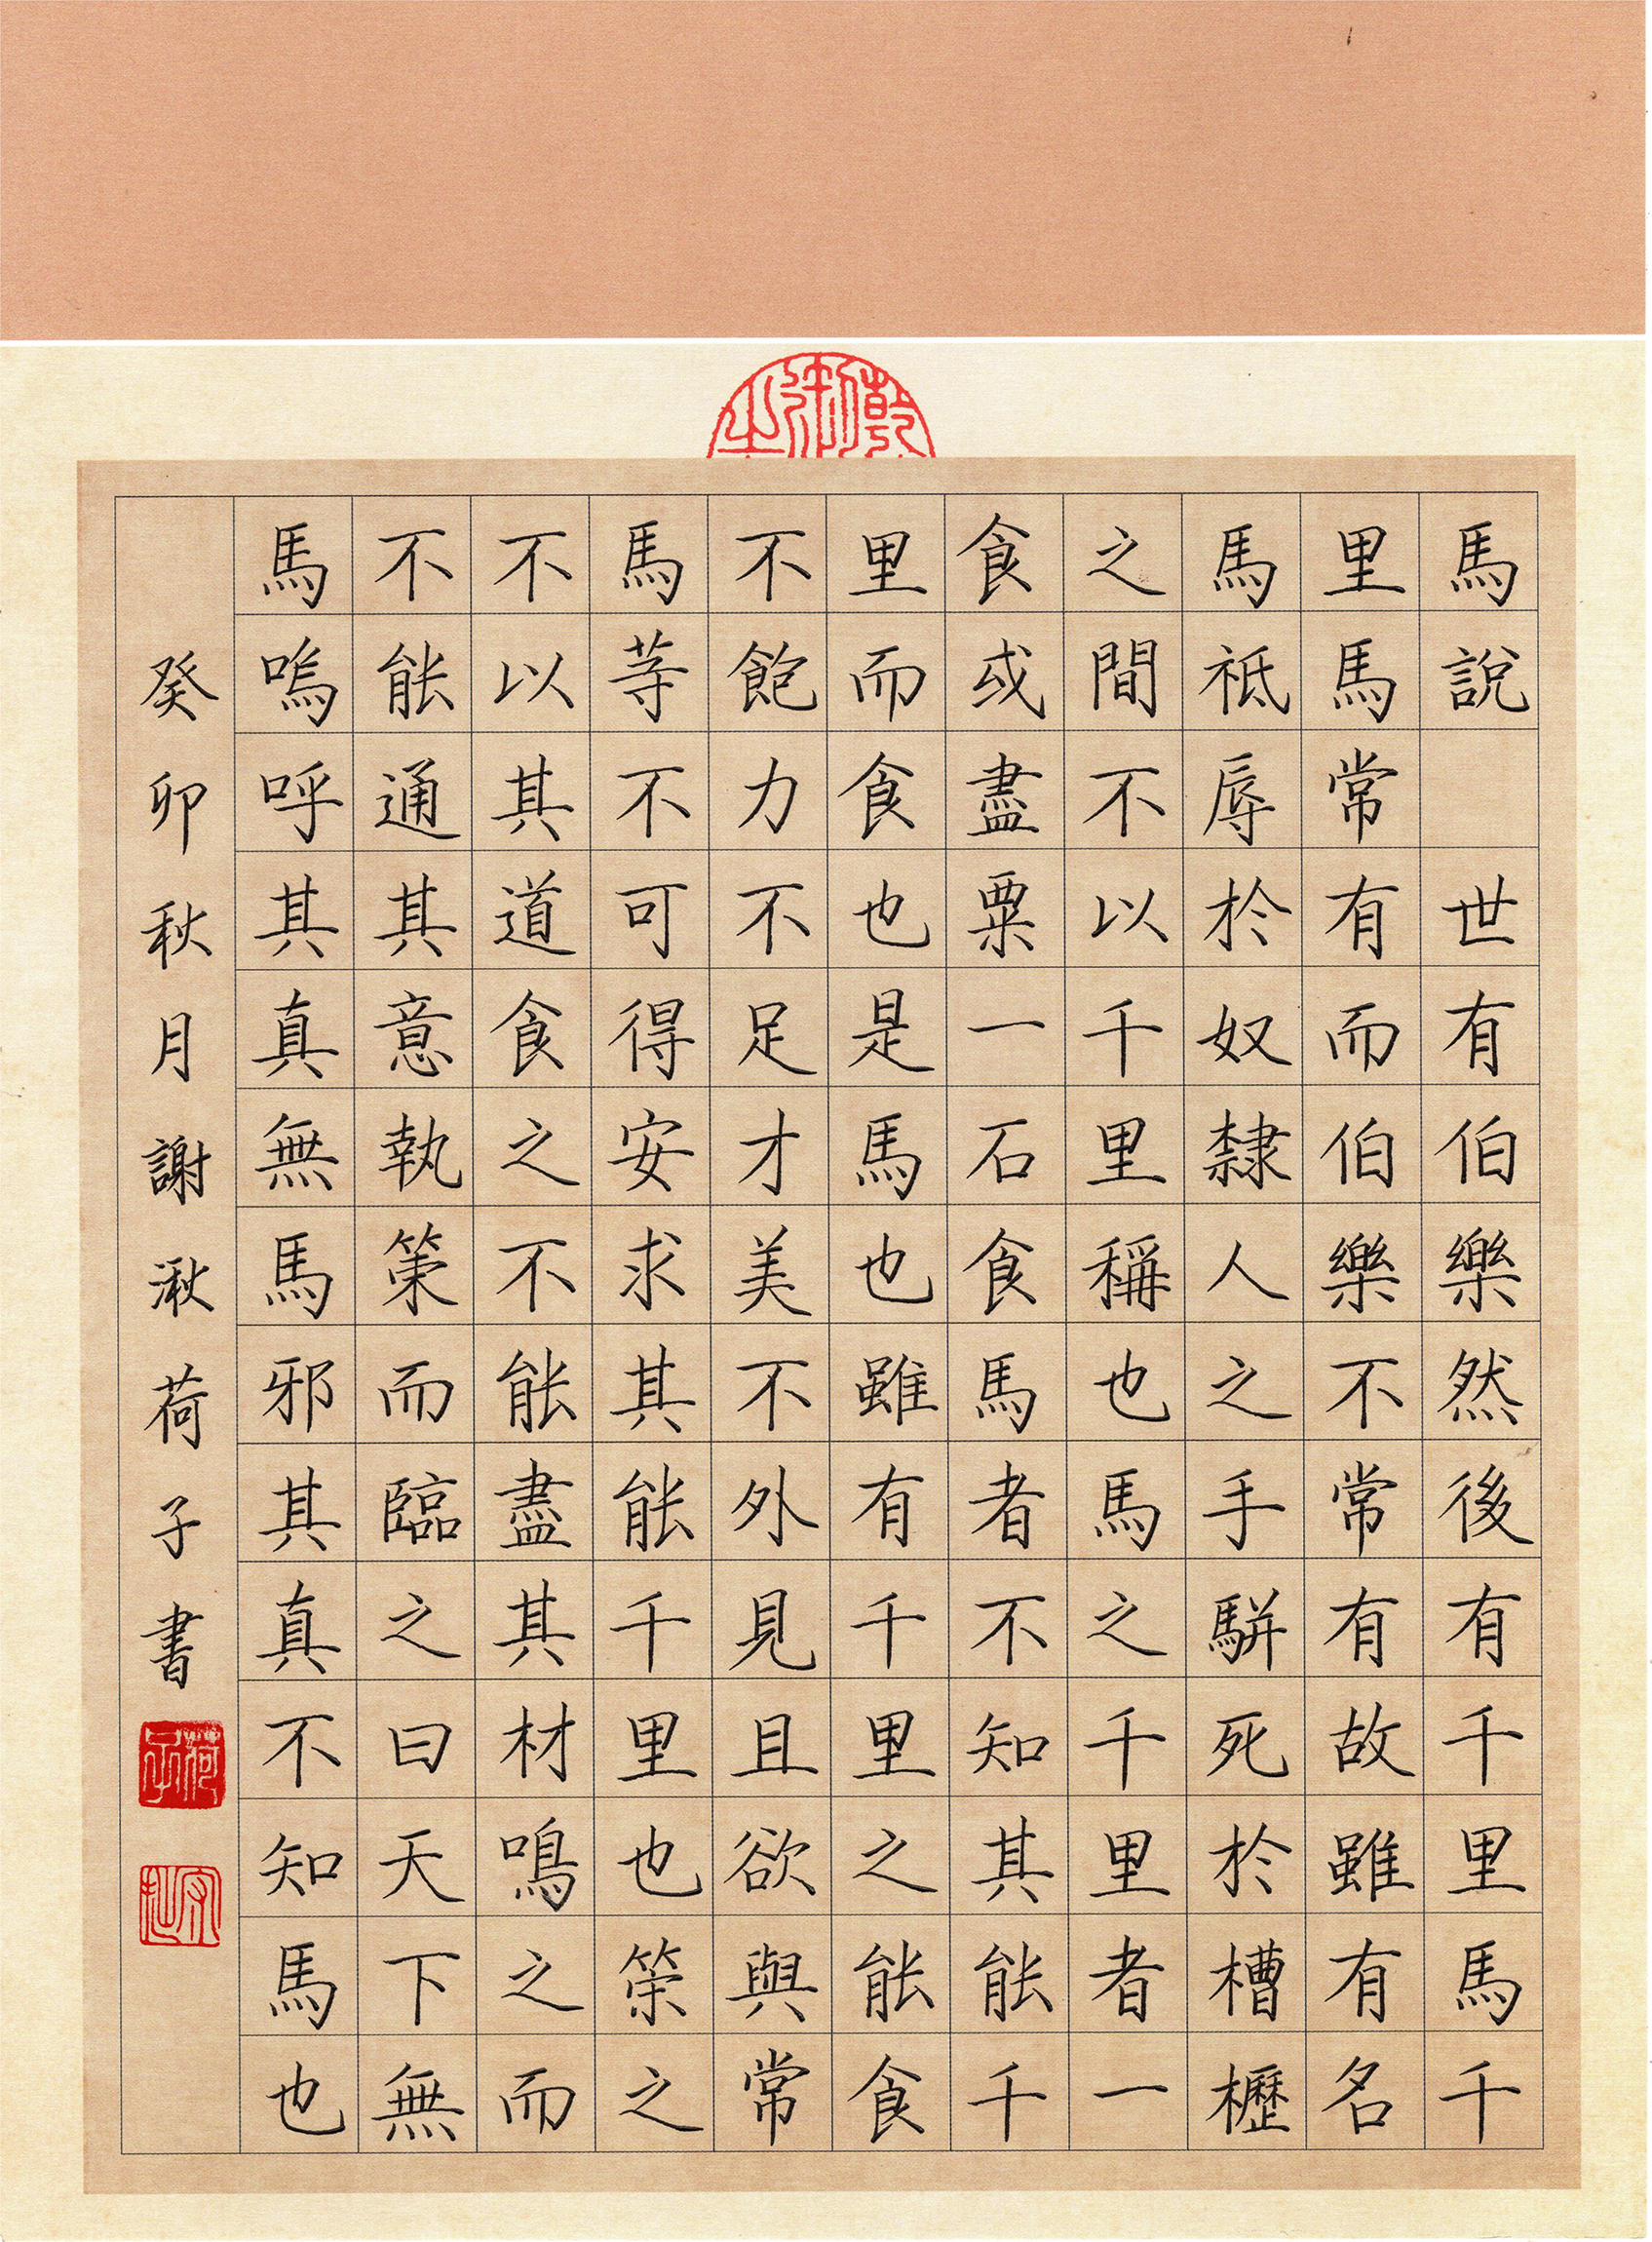 馬說 世有伯樂然後有千里馬千
里馬常有而伯樂不常有故雖有名
馬祗辱於奴隸人之手駢死於槽櫪
之間不以千里稱也馬之千里者一
食或盡粟一石食馬者不知其能千
里而食也是馬也雖有千里之能食
不飽力不足才美不外見且欲與常
馬等不可得安求其能千里也策之
不以其道食之不能盡其材鳴之而
不能通其意執策而臨之曰天下無
馬嗚呼其真無馬邪其真不知馬也
癸卯秋月謝湫荷子書
荷子